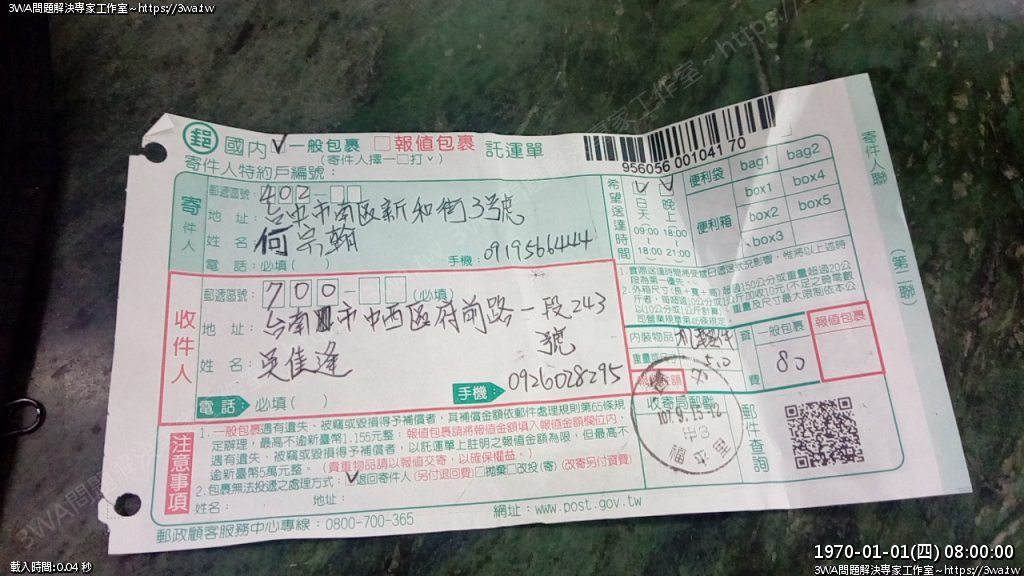 3WA問題解決專家工作室~https://3wa.tw
3WA問題解決專家工作室~https://3wa.tw
郵 國內 V一般包裹 □報值包裹 託運單
(寄件人擇一□打ˇ)
寄件人特約戶編號：
956056 001041 70
寄件人聯
(第二聯)
寄件人
郵遞區號：402-□□
地 址：台中市南區新和街3號
姓 名：何宗翰
電 話：必填( )
手機：0919566444
希望送達時間
V V
白天 晚上
09:00~18:00 18:00~21:00
便利袋 bag1 bag2
便利箱 box1 box4
box2 box5
box3
收件人
郵遞區號：700-□□(必填)
地 址：台南市中西區府前路一段243號
姓 名：吳佳逢
電話：必填( )
手機：0926028295
內裝物品
資費
一般包裹
80
報值包裹
收寄局郵戳
郵件查詢
注意事項
1.一般包裹遇有遺失、被竊或毀損得予補償者，其補償金額依郵件處理規則第65條規
定辦理，最高不逾新臺幣1,155元整；報值包裹請將報值金額填入報值金額欄位內，
遇有遺失、被竊或毀損得予補償者，以託運單上註明之報值金額為限，但最高不
逾新臺幣5萬元整。(貴重物品請以報值交寄，以確保權益。)
2.包裹無法投遞之處理方式：V退回寄件人(另付退回費)□拋棄□改投(寄)(改寄另付資費)
姓名：
地址：
郵政顧客服務中心專線：0800-700-365
網址：www.post.gov.tw
載入時間:0.04 秒
1970-01-01(四) 08:00:00
3WA問題解決專家工作室~https://3wa.tw